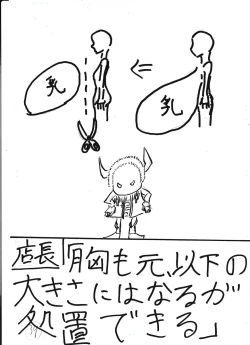 乳
乳
店長「胸も元、以下の
大きさにはなるが
処置できる」